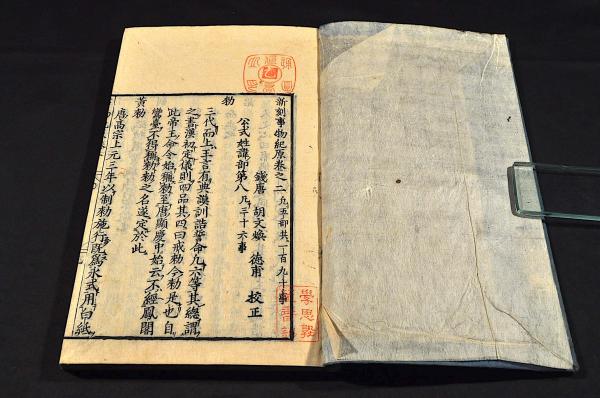 新刻事物紀原卷之二 凡五部共一百九十事
錢唐 胡文煥 德甫 校正
公式姓諱部第八 凡三十六事
勑
三代而上王言有典謨訓誥誓命凡六等其總謂
之書漢初定儀則四品其四曰戒勑今勑是也自
此帝王命令始稱勑至唐顯慶中始云不經鳳閣
鸞臺不得稱勑勑之名遂定於此
黃勑
唐高宗上元三年以制勑施行既爲永式用白紙
學思